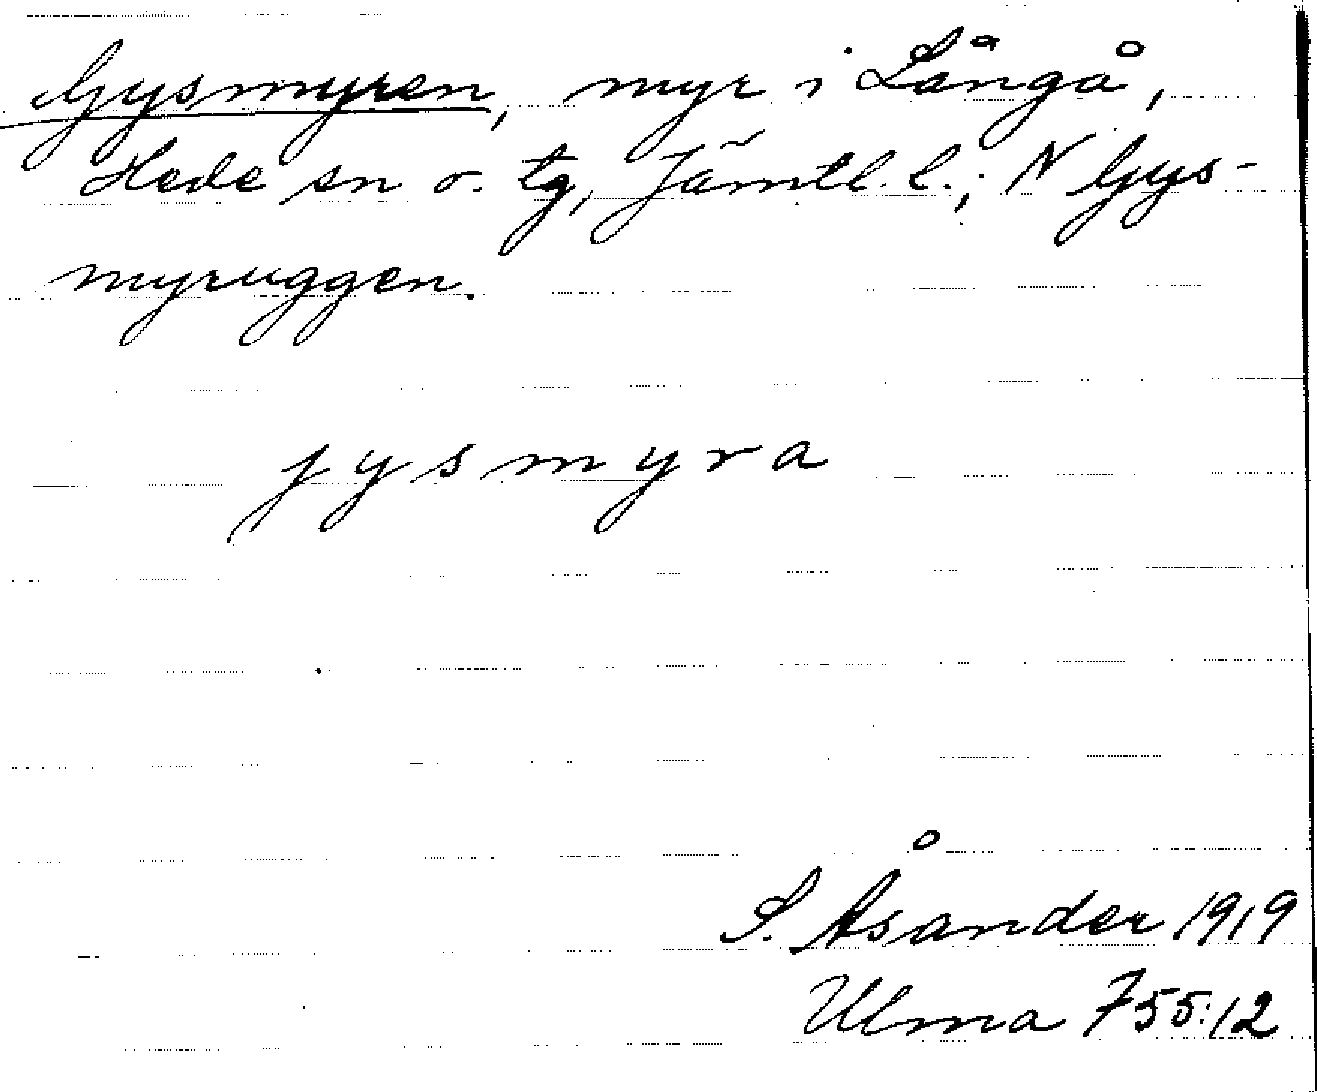 Gysmyren, myr i Långå,
Hede sn o. tg, Jämtl. l.; N Gys-
myruggen.
jysmyra
S. Åsander 1919
Ulma 755:12